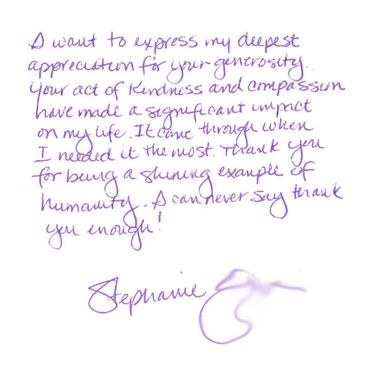 I want to express my deepest
appreciation for your generosity.
Your act of kindness and compassion
have made a significant impact
on my life. It came through when
I needed it the most. Thank you
for being a shining example of
humanity. I can never say thank
you enough!
Stephanie